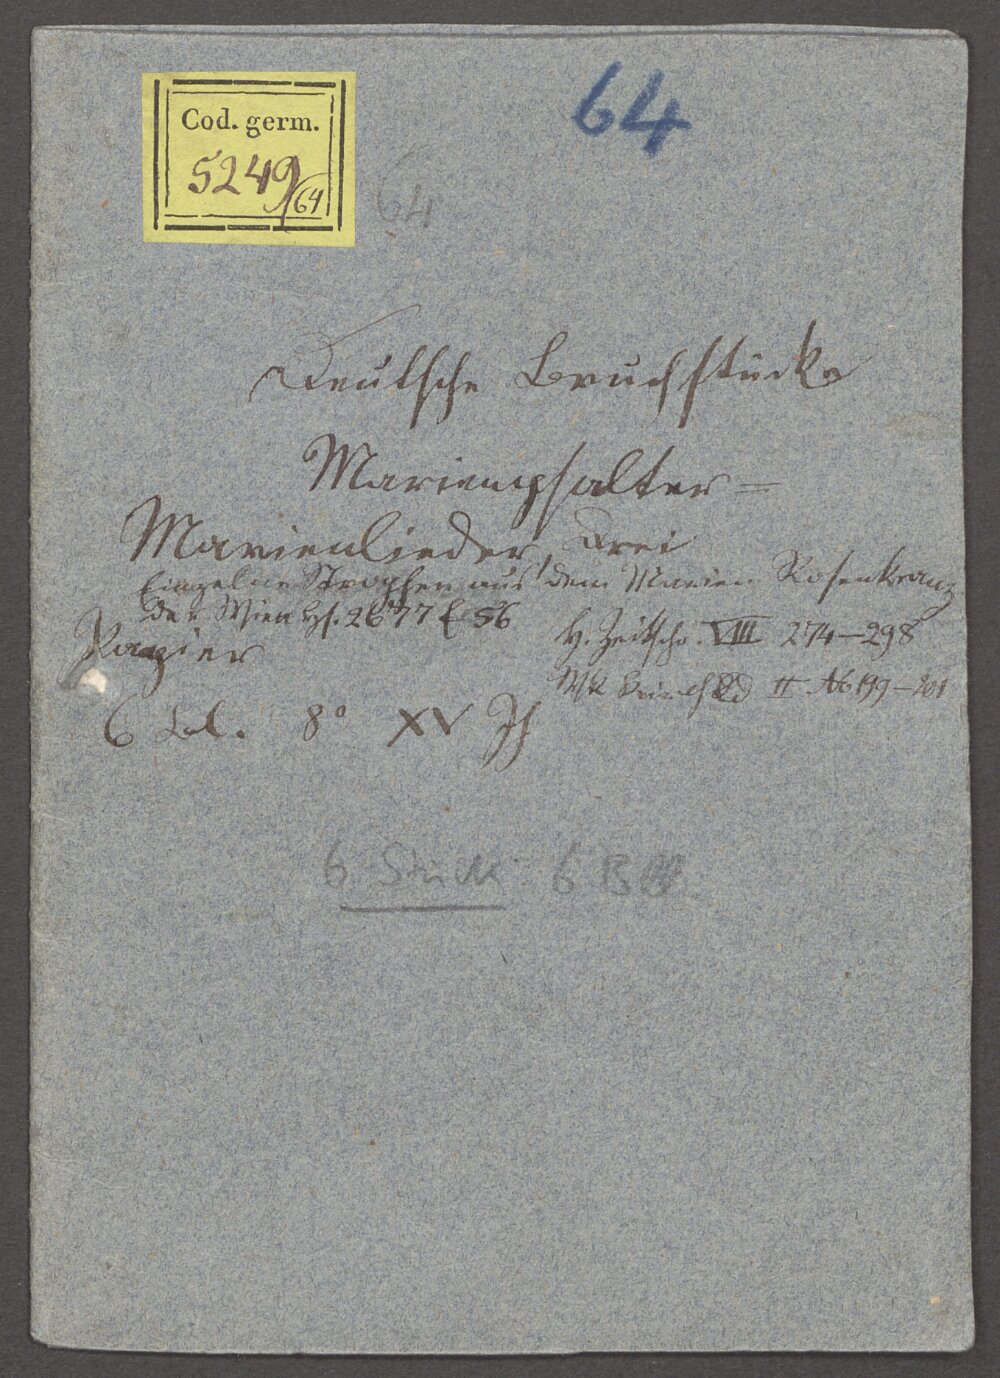 64
Cod. germ.
5249/64
64
Deutsche Bruchstücke
Marienpsalter =
Marienlieder, drei
Einzelne Strophen aus dem Marien Rosenkranz
der Wien. Hs. 2677 f 56
H. Zeitschr. VIII 274–298
Papier
II No 199–201
6 Bl. 8° XV Jh
6 Stück 6 Bll